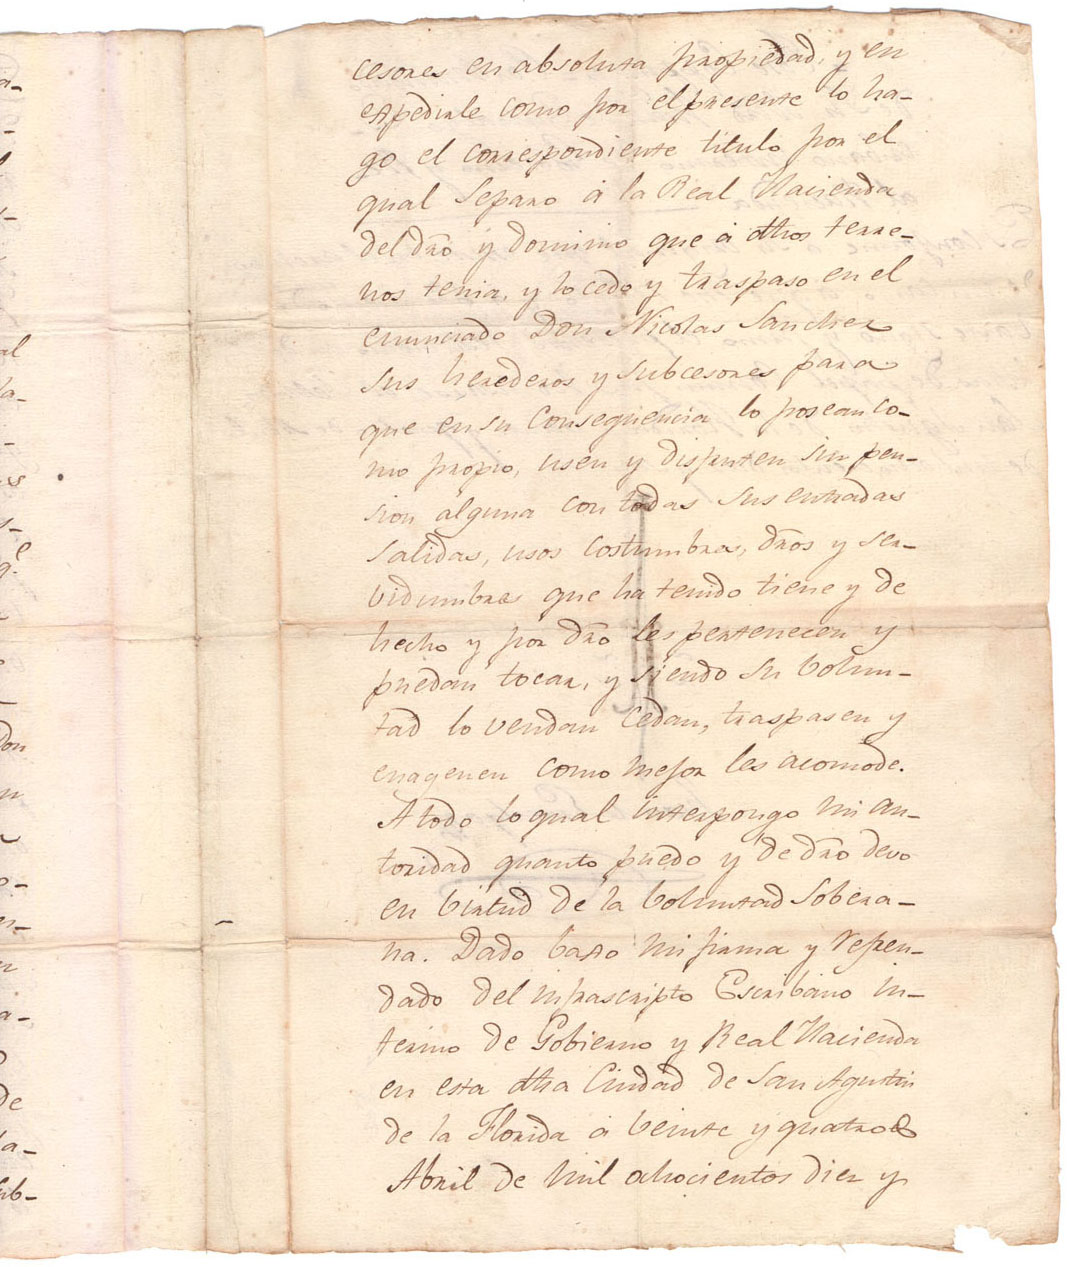 cesores en absoluta propiedad, y en
expedirle como por el presente lo ha-
go el correspondiente titulo por el
qual Separo á la Real Hacienda
del dro y dominio que á dhos terre-
nos tenia, y lo cedo y traspaso en el
enunciado Don Nicolas Sanchez
sus herederos y subcesores para
que en su Conseqüencia lo posean co-
mo propio, usen y disfruten sin pen-
sion alguna con todas sus entradas
Salidas, usos costumbres, dros y ser-
vidumbres que ha tenido tiene y de
hecho y por dro les pertenecen y
puedan tocar, y siendo su bolun-
tad lo vendan Cedan, traspasen y
enagenen como mejor les acomode.
A todo lo qual interpongo mi au-
toridad quanto puedo y de dro devo
en birtud de la boluntad Sobera-
na. Dado baxo mi firma y refren-
dado del infrascripto Escribano in-
terino de Gobierno y Real Hacienda
en esta dha Ciudad de San Agustin
de la Florida á beinte y quatro de
Abril de mil ahocientos diez y
al
qe
don
de